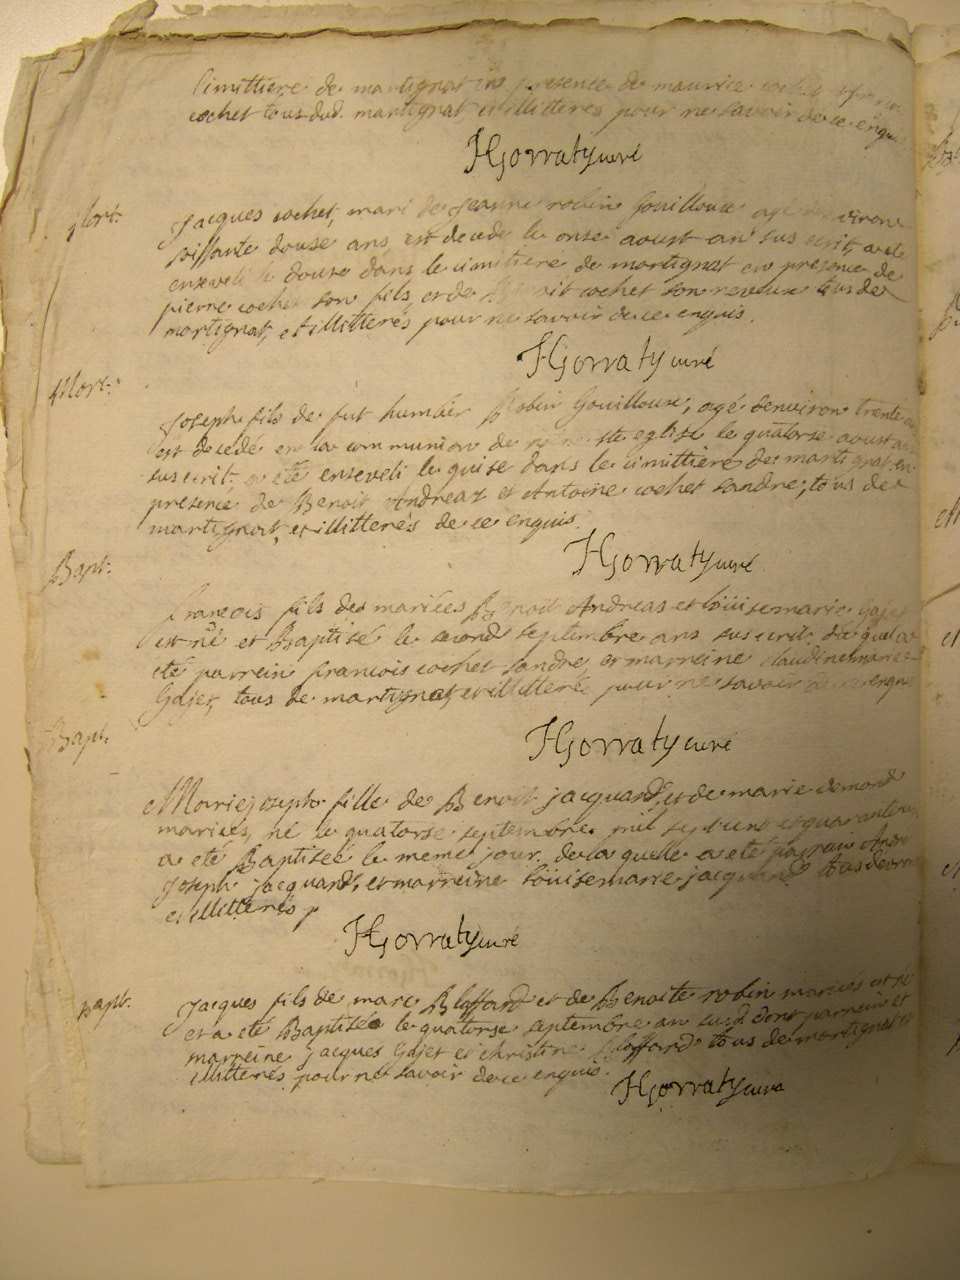 Cimittiere de martignat en presence de maurice
cochet tous dud. martignat et illitteres pour ne savoir de ce enquis
HGorraty curé
Mort.
Jacques cochet, mari de jeanne robin Gouilloux agé denviron
soissante douse ans, est decede le onse aoust an sus ecrit, a ete
enseveli le douse dans le cimitiere de martignat en presence de
pierre cochet son fils, et de benoit cochet son neveux tous de
martignat, et illitterés pour ne savoir de ce enquis.
HGorraty curé
Mort.
Joseph fils de fut humber Robin Gouilloux, agé denviron trente
est decedé en la communion de ste eglise le quatorse aoust an
sus ecrit. a eté enseveli le quise dans le cimittiere de martignat en
presence de Benoit Andreaz et Antoine cochet sandre, tous de
martignat, et illitterés de ce enquis.
HGorraty curé
Bapt.
françois fils des mariées Benoit Andreas et loüise marie Gojet
est né et Baptisé le second septembre ans sus ecrit. du quel a
eté parrein francois cochet sandre, et marreine claudine marie
Gojet, tous de martignat, et illitterés pour ne savoir de ce enquis
HGorraty curé
Bapt.
Marie joseph fille de Benoit jacquand, et de marie demond
mariés, né le quatorse septembre mil sept cent et quarante
a eté Baptisée le meme jour. de la quelle a eté parrain
joseph jacquand, et marreine loüise marie jacquand tous de
et illitterés
HGorraty curé
Bapt.
Jacques fils de marc Bloffard et de Benoite robin mariés est né
et a eté Baptisé le quatorse septembre an susd. dont parrein et
marreine jacques Gojet et christine Bloffard tous de martignat et
illitteres pour ne savoir de ce enquis.
HGorraty curé